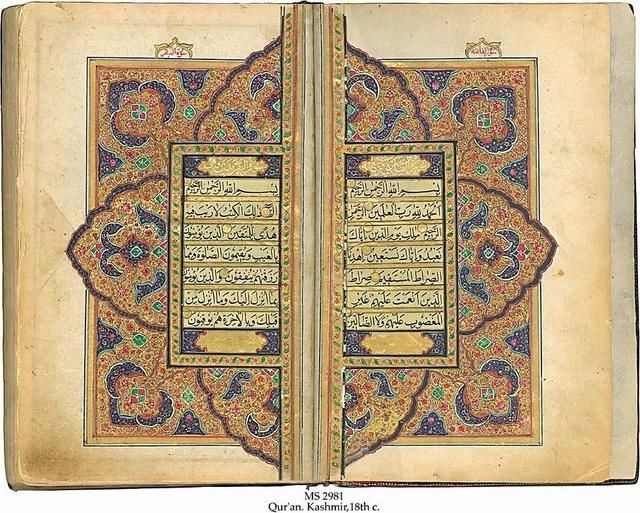 بسم الله الرحمن الرحيم
الحمد لله رب العلمين الرحمن
الرحيم ملك يوم الدين اياك
نعبد واياك نستعين اهدنا
الصراط المستقيم صراط
الذين انعمت عليهم غير
المغضوب عليهم ولا الضالين
بسم الله الرحمن الرحيم
الم ذلك الكتب لا ريب فيه
هدى للمتقين الذين يؤمنون
بالغيب ويقيمون الصلوة ومما
رزقنهم ينفقون والذين يؤمنون
بما انزل اليك وما انزل من
قبلك وبالاخرة هم يوقنون
MS 2981
Qur'an. Kashmir,18th c.